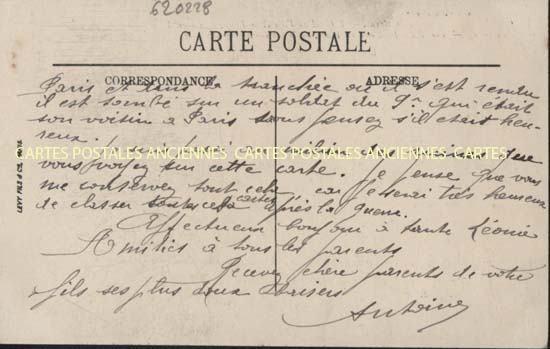 620228
CARTE POSTALE
CORRESPONDANCE
ADRESSE
Paris et dans la tranchée où il s'est rendu
il est tombé sur un soldat du 9e qui était
son voisin à Paris vous pensez s'il était heu-
reux. Je suis
CARTES POSTALES ANCIENNES CARTES POSTALES ANCIENNES CARTES POSTALES ANCIENNES
vous voyez sur cette carte. je pense que vous
me conservez tout cela car je serai très heureux
de classer toutes ces cartes après la guerre.
Affectueux bonjour à tante Léonie
Amitiés à tous les parents
Recevez chère parents de votre
fils ses plus doux Baisers
Antoine
LEVY FILS & CIE. PARIS